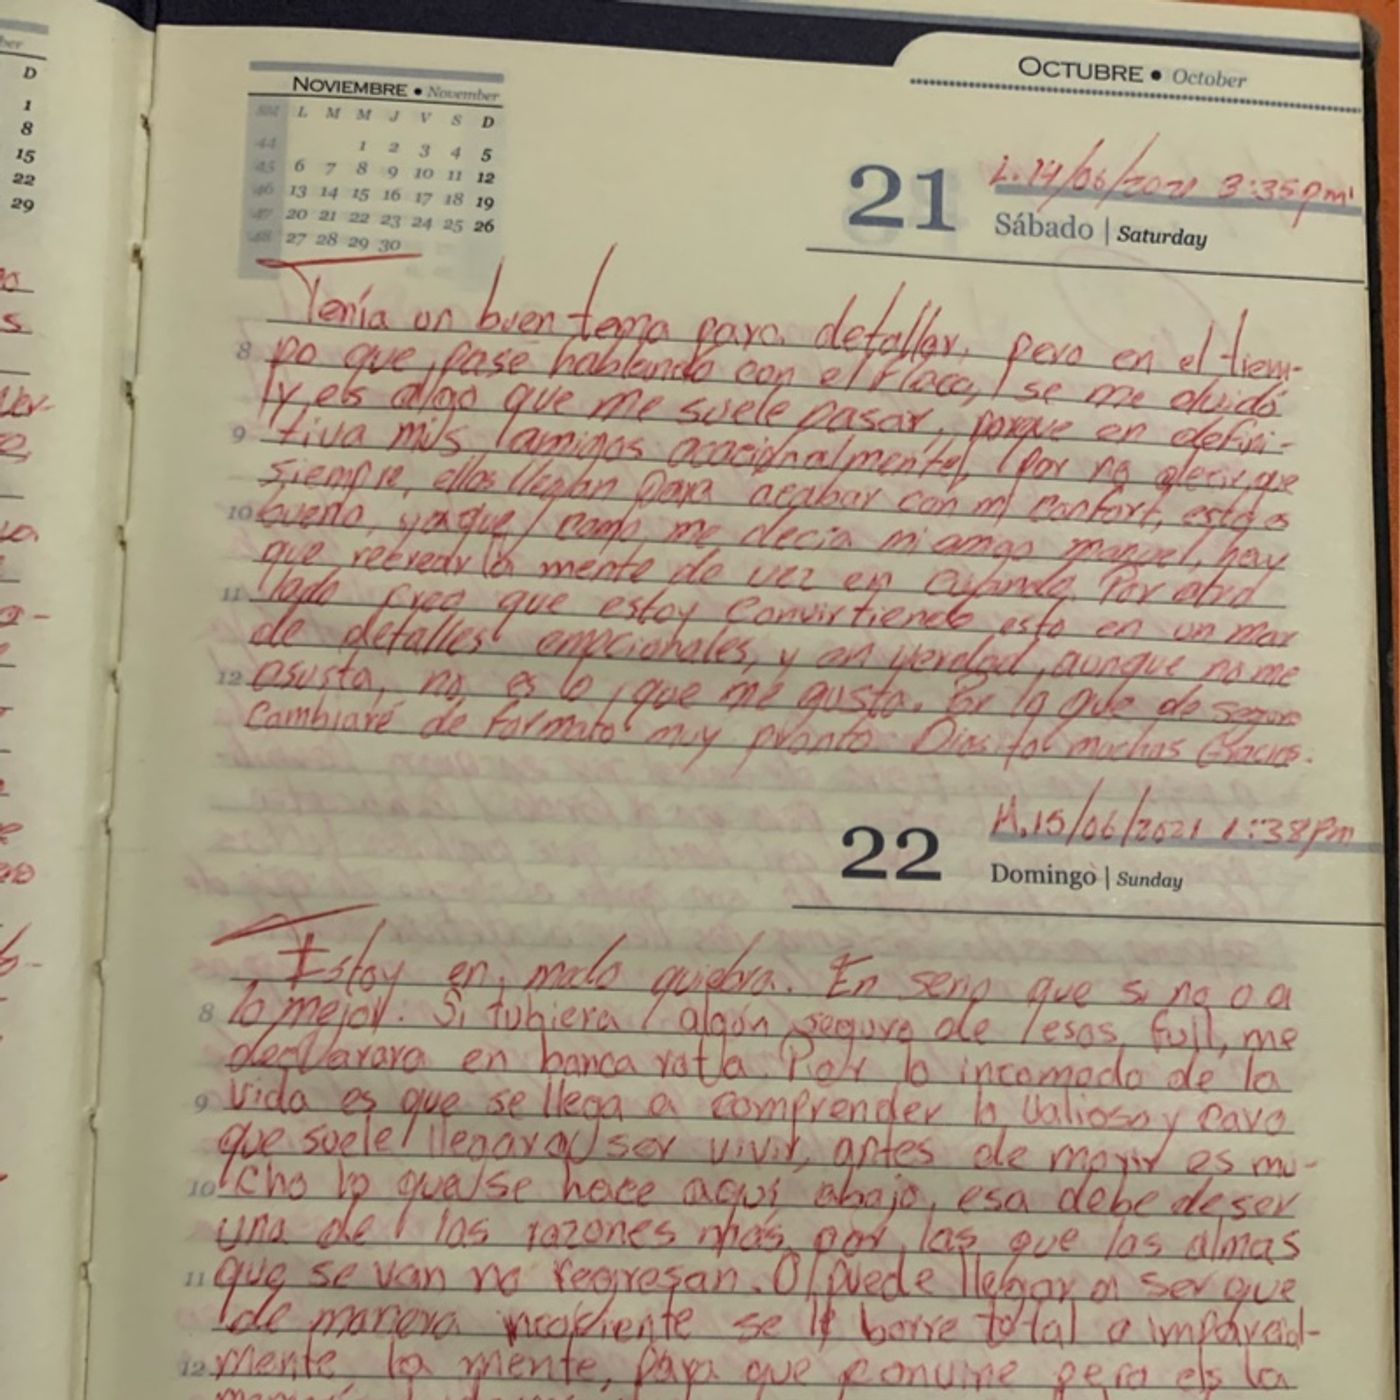 ber
D
1
8
15
22
29
NOVIEMBRE • November
SM L M M J V S D
44 1 2 3 4 5
45 6 7 8 9 10 11 12
46 13 14 15 16 17 18 19
47 20 21 22 23 24 25 26
48 27 28 29 30
OCTUBRE • October
21
L. 14/06/2021 3:35pm
Sábado | Saturday
Tenía un buen tema para detallar, pero en el tiem-
8 po que pasé hablando con el Flaco, se me olvidó
y es algo que me suele pasar, porque en defini-
9 tiva mis amigos ocacionalmente, por no decir que
siempre, ellos llegan para acabar con mi confort, esto es
10 bueno, ya que como me decía mi amigo manuel, hay
que recrear la mente de vez en cuando. Por otro
11 lado creo que estoy convirtiendo esto en un mar
de detalles emocionales, y en verdad, aunque no me
12 asusta, no es lo que me gusta. Por lo que de seguro
cambiaré de formato muy pronto. Dios muchas Gracias.
22
M. 15/06/2021 1:38pm
Domingo | Sunday
Estoy en mala quiebra. En que si no o a
8 lo mejor. Si tubiera algún seguro de esos full, me
declarara en banca rota. Por lo incomodo de la
9 vida es que se llega a comprender lo valioso y caro
que suele llegar a ser vivir, antes de morir es mu-
10 cho lo que se hace aquí abajo, esa debe de ser
una de las razones más por las que las almas
11 que se van no regresan. O puede llegar a ser que
de manera se le borre total o imparcial-
12 mente, la mente, para que pero es la